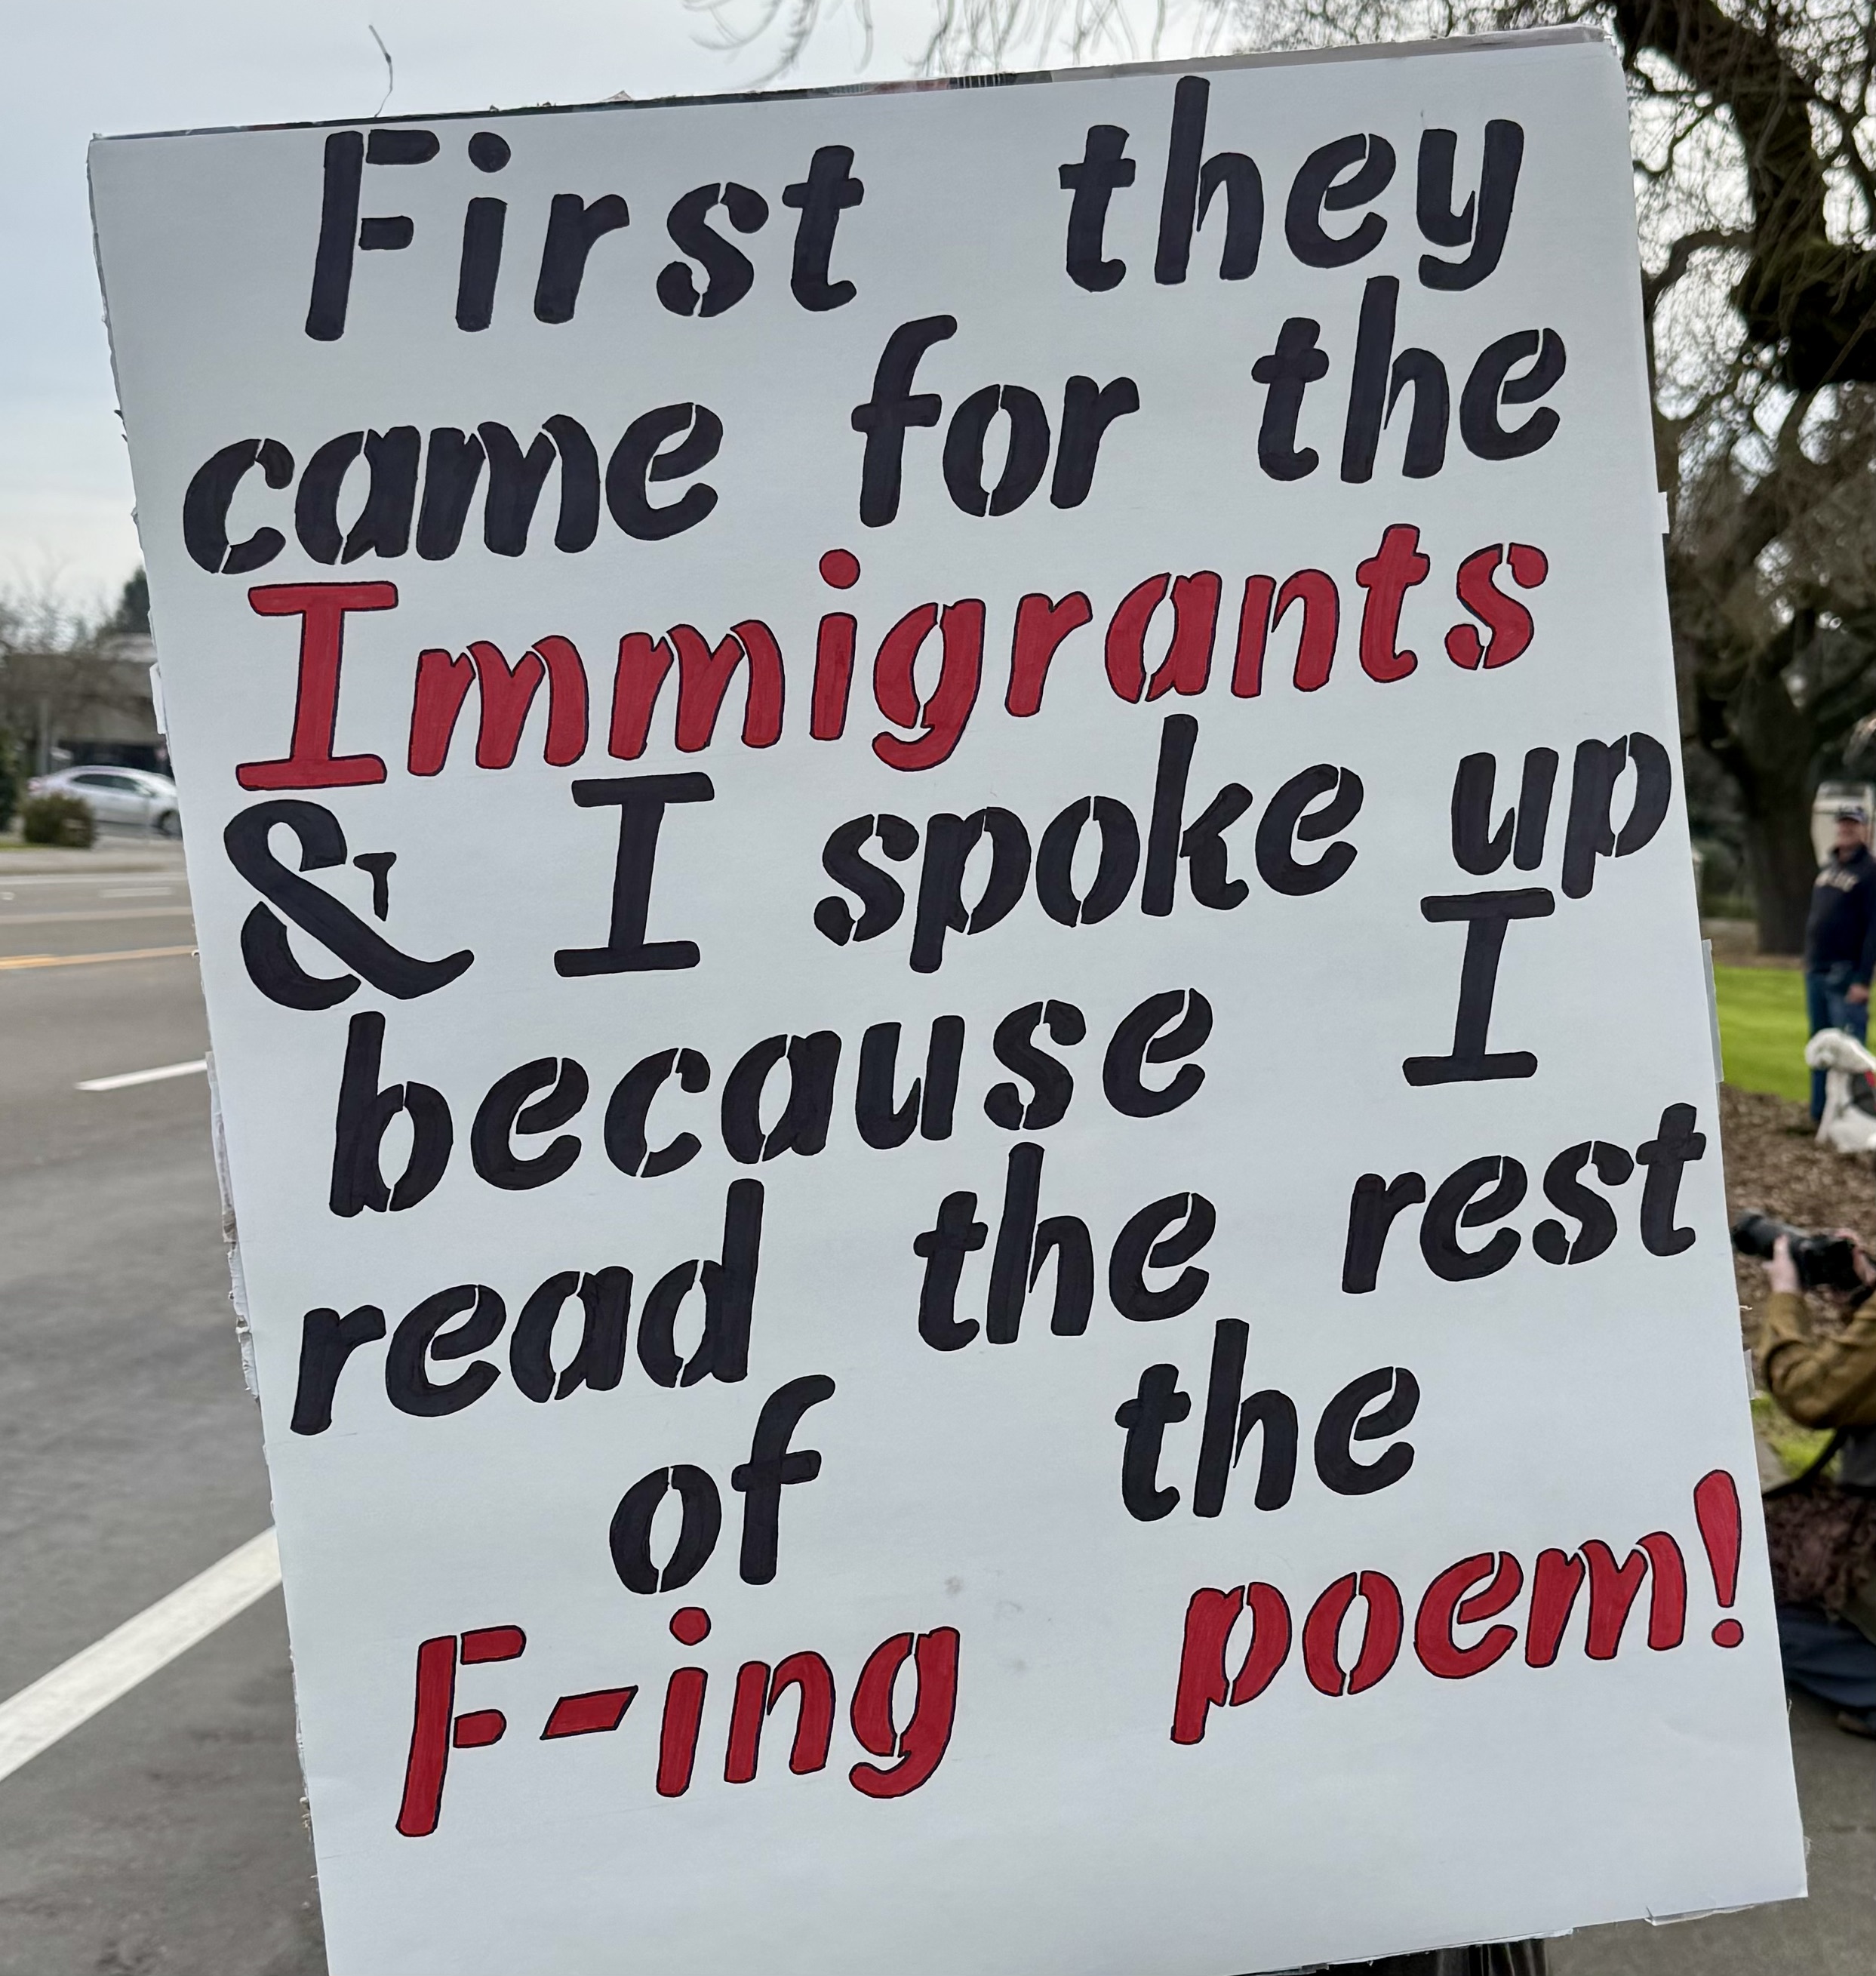 First they
came for the
Immigrants
& I spoke up
because I
read the rest
of the
F-ing poem!